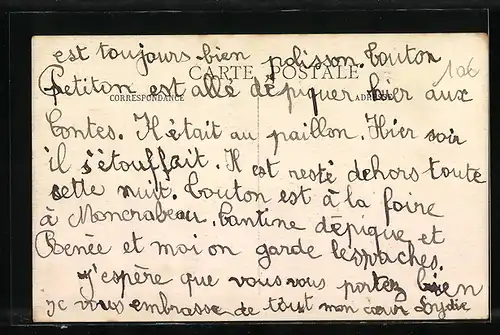 est toujours bien polisson. Touton
CARTE POSTALE
10€
Petiton est allé dépiquer hier aux
CORRESPONDANCE
ADRESSE
Contes. Il était au paillon. Hier soir
il s'étouffait. Il est resté dehors toute
sette nuit. Touton est à la foire
à Moncrabeau. Cantine dépique et
Renée et moi on garde les vaches
j'espère que vous vous portez bien
je vous embrasse de tout mon cœur Lydie